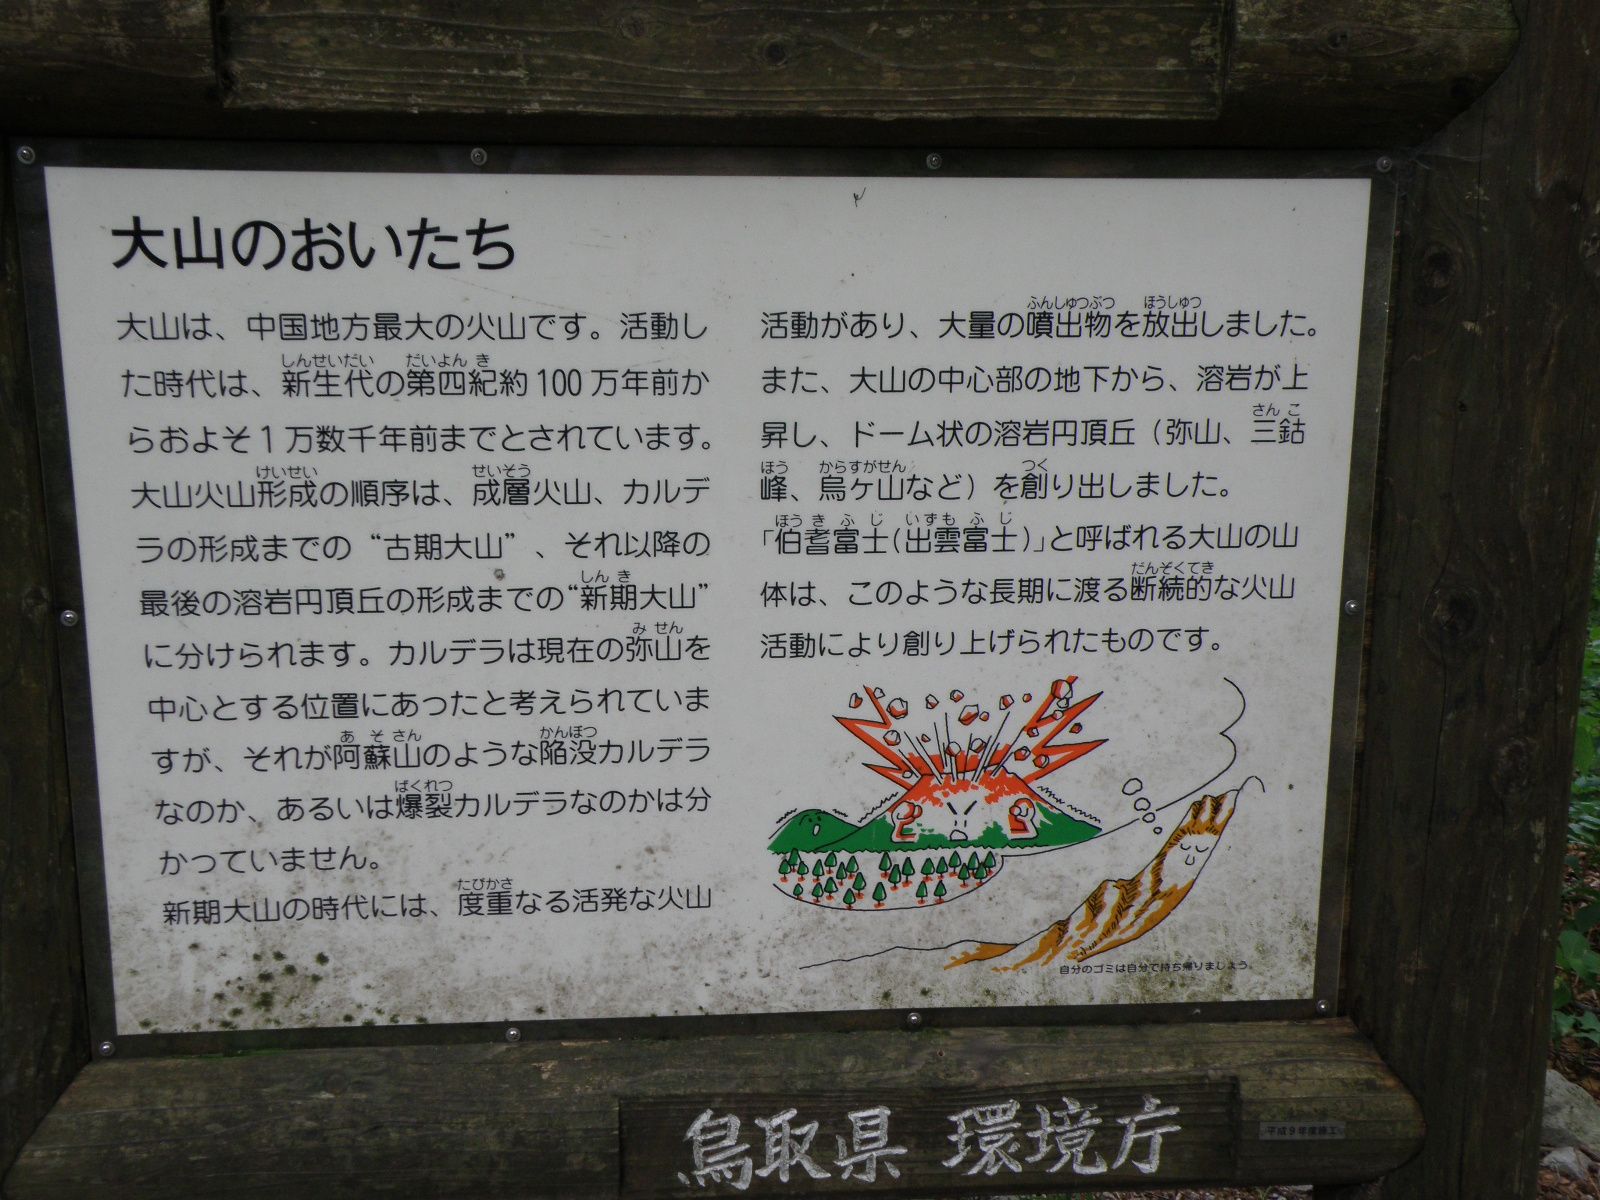 大山のおいたち
大山は、中国地方最大の火山です。活動し
しんせいだい だいよんき
た時代は、新生代の第四紀約100万年前か
らおよそ1万数千年前までとされています。
けいせい せいそう
大山火山形成の順序は、成層火山、カルデ
ラの形成までの“古期大山”、それ以降の
しんき
最後の溶岩円頂丘の形成までの“新期大山”
みせん
に分けられます。カルデラは現在の弥山を
中心とする位置にあったと考えられていま
あそさん かんぼつ
すが、それが阿蘇山のような陥没カルデラ
ばくれつ
なのか、あるいは爆裂カルデラなのかは分
かっていません。
たびかさ
新期大山の時代には、度重なる活発な火山
ふんしゅつぶつ ほうしゅつ
活動があり、大量の噴出物を放出しました。
また、大山の中心部の地下から、溶岩が上
さんこ
昇し、ドーム状の溶岩円頂丘（弥山、三鈷
ほう からすがせん つく
峰、烏ヶ山など）を創り出しました。
ほうきふじ いずもふじ
「伯耆富士(出雲富士)」と呼ばれる大山の山
だんぞくてき
体は、このような長期に渡る断続的な火山
活動により創り上げられたものです。
自分のゴミは自分で持ち帰りましょう。
鳥取県 環境庁
平成9年度施工